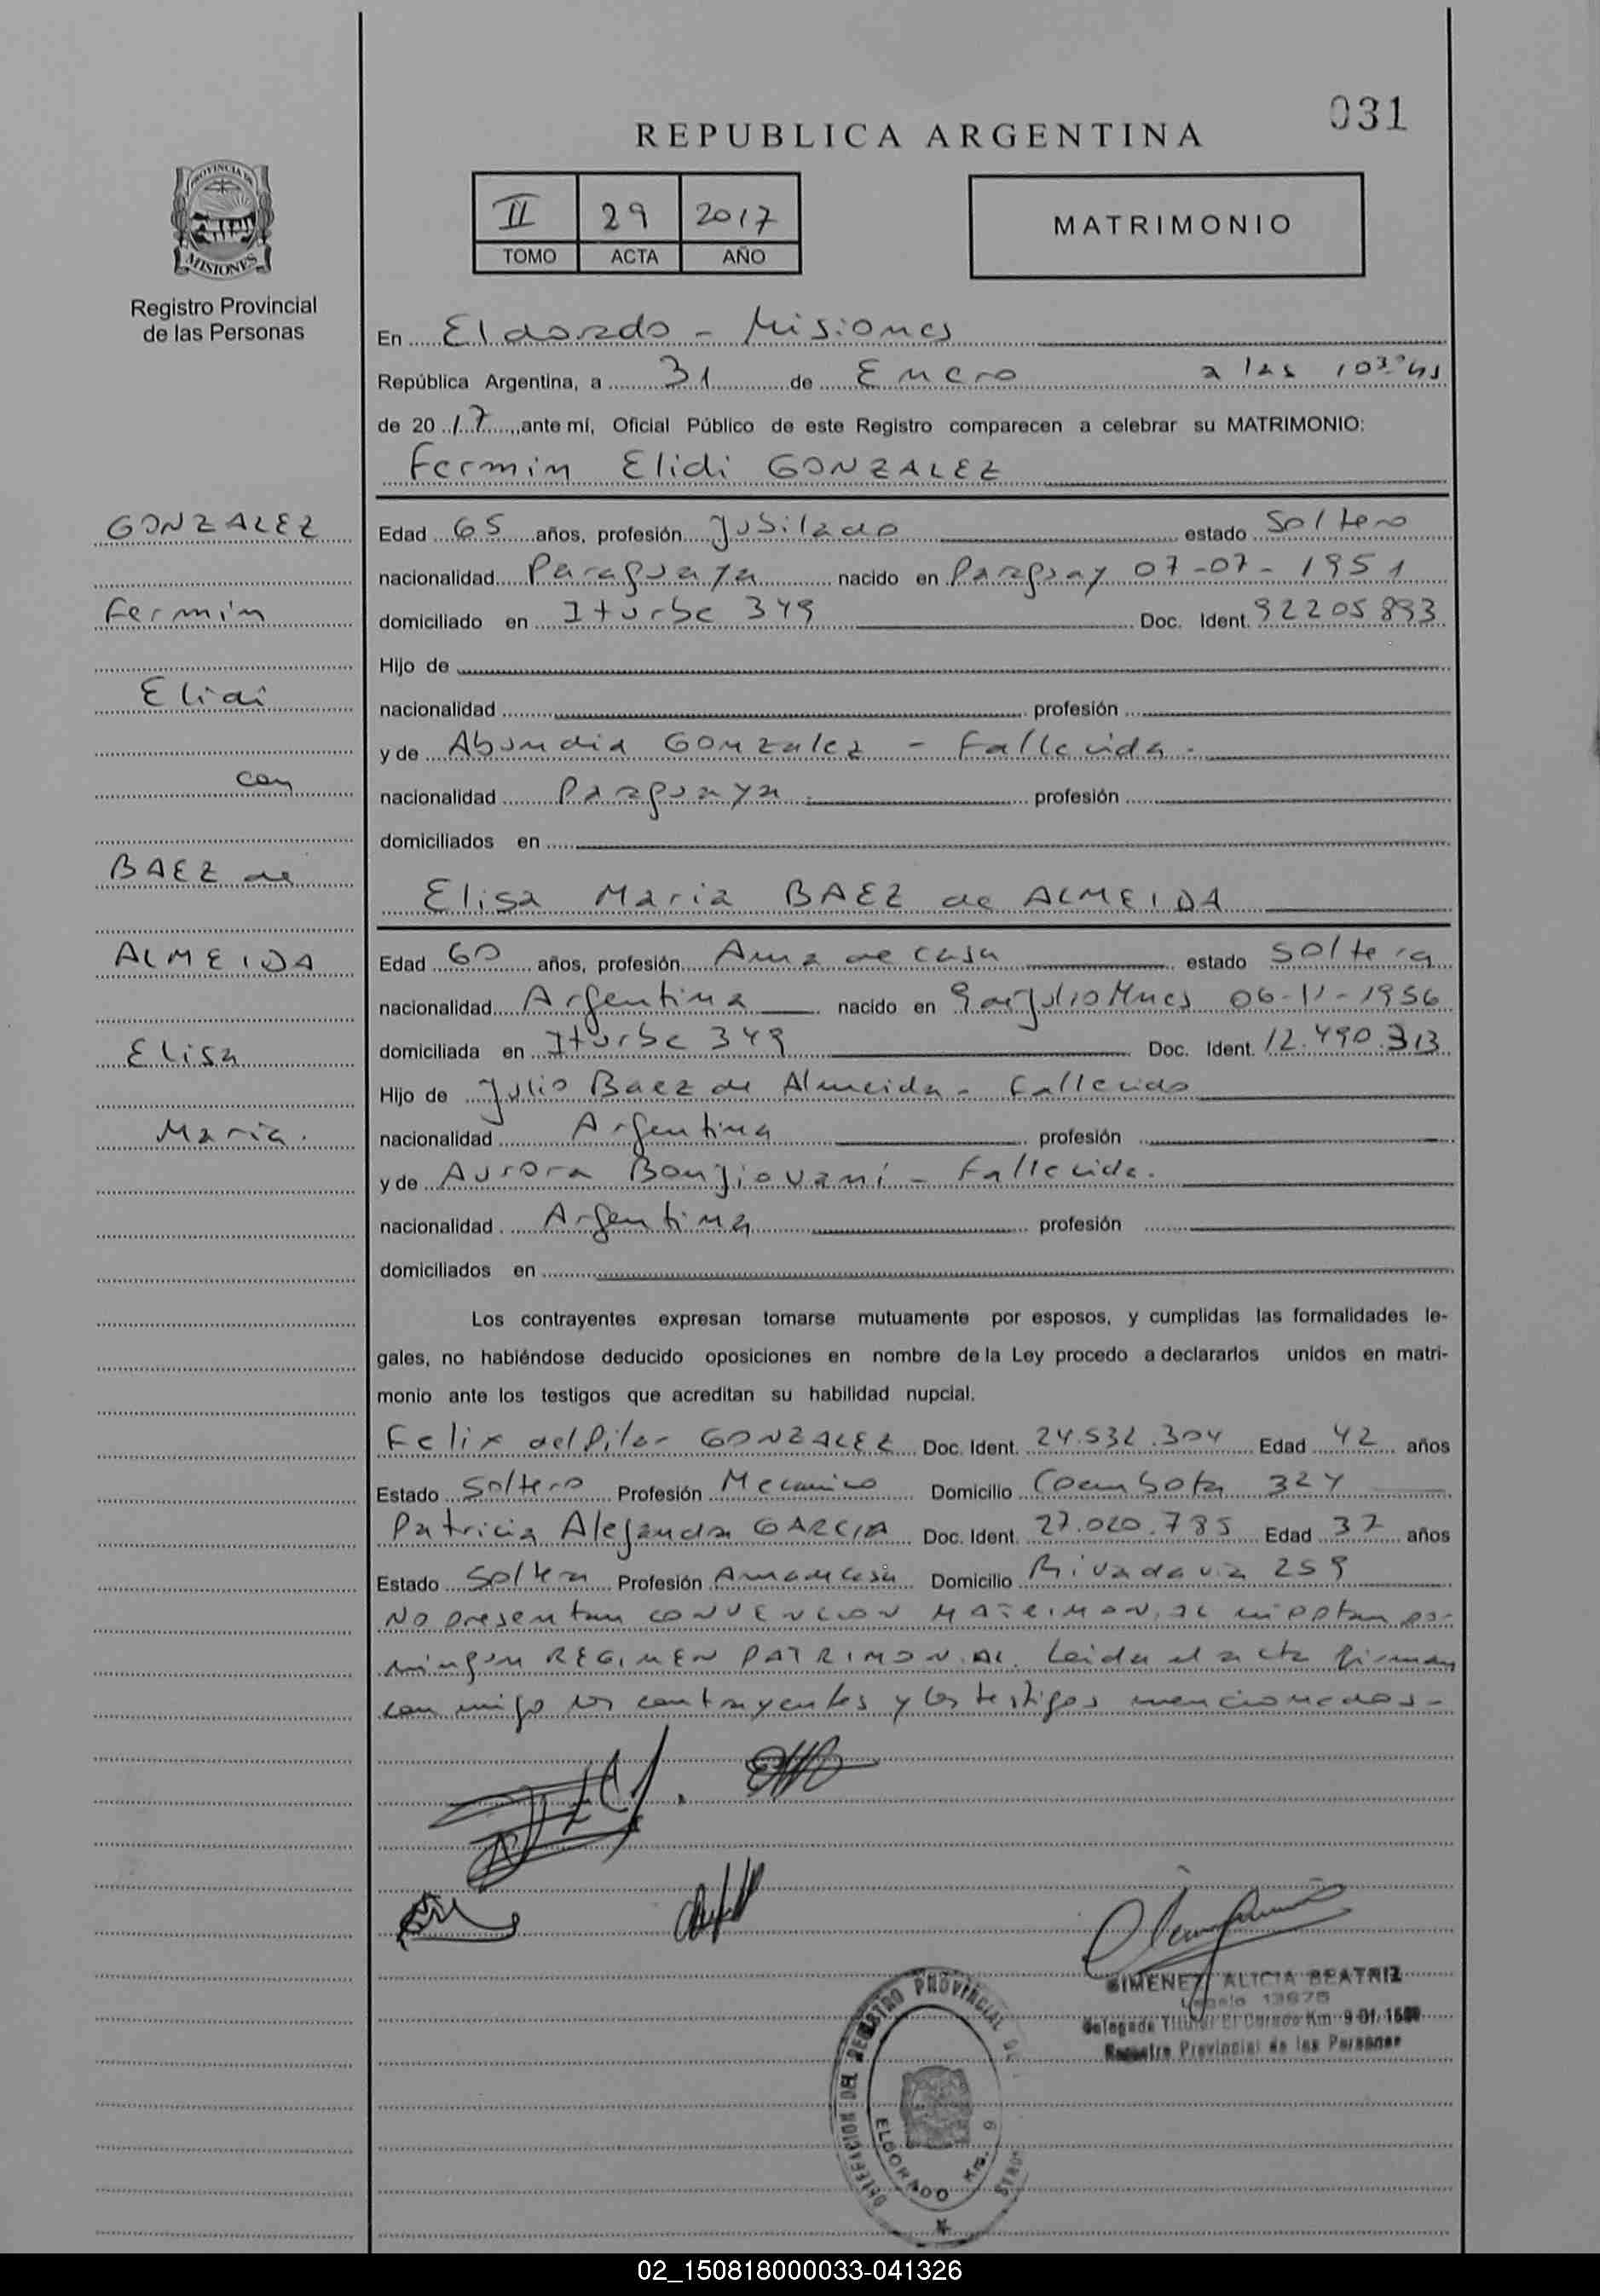 031
REPUBLICA ARGENTINA
PROVINCIA DE
MISIONES
Registro Provincial
de las Personas
II 29 2017
TOMO ACTA AÑO
MATRIMONIO
En Eldorado - Misiones
República Argentina, a 31 de Enero a las 10³⁰ hs
de 2017, ante mí, Oficial Público de este Registro comparecen a celebrar su MATRIMONIO:
Fermin Elidi GONZALEZ
GONZALEZ
Fermin
Elidi
con
BAEZ de
ALMEIDA
Elisa
Maria.
Edad 65 años, profesión Jubilado estado Soltero
nacionalidad Paraguaya nacido en Paraguay 07-07-1951
domiciliado en Iturbe 349 Doc. Ident. 92205893
Hijo de
nacionalidad profesión
y de Abundia Gonzalez - Fallecida.
nacionalidad Paraguaya. profesión
domiciliados en
Elisa Maria BAEZ de ALMEIDA
Edad 60 años, profesión Ama de casa estado Soltera
nacionalidad Argentina nacido en 06-11-1956
domiciliada en Iturbe 349 Doc. Ident. 12.490.313
Hijo de Julio Baez de Almeida - Fallecido
nacionalidad Argentina profesión
y de Aurora Bonjiovani - Fallecida.
nacionalidad Argentina profesión
domiciliados en
Los contrayentes expresan tomarse mutuamente por esposos, y cumplidas las formalidades le-
gales, no habiéndose deducido oposiciones en nombre de la Ley procedo a declararlos unidos en matri-
monio ante los testigos que acreditan su habilidad nupcial.
Felix del Pilar GONZALEZ Doc. Ident. 24.532.304 Edad 42 años
Estado Soltero Profesión Mecanico Domicilio 324
Patricia Alejandra GARCIA Doc. Ident. 27.020.785 Edad 37 años
Estado Soltera Profesión Ama de casa Domicilio Rivadavia 259
No presentan CONVENCION MATRIMONIAL ni optan por
ningun REGIMEN PATRIMONIAL. Leida el acta firman
conmigo los contrayentes y los testigos mencionados-
GIMENEZ ALICIA BEATRIZ
Legajo 13675
Delegada Titular El Dorado Km 9
Registro Provincial de las Personas
DELEGACION DEL REGISTRO PROVINCIAL DE
ELDORADO Km. 9
02_150818000033-041326